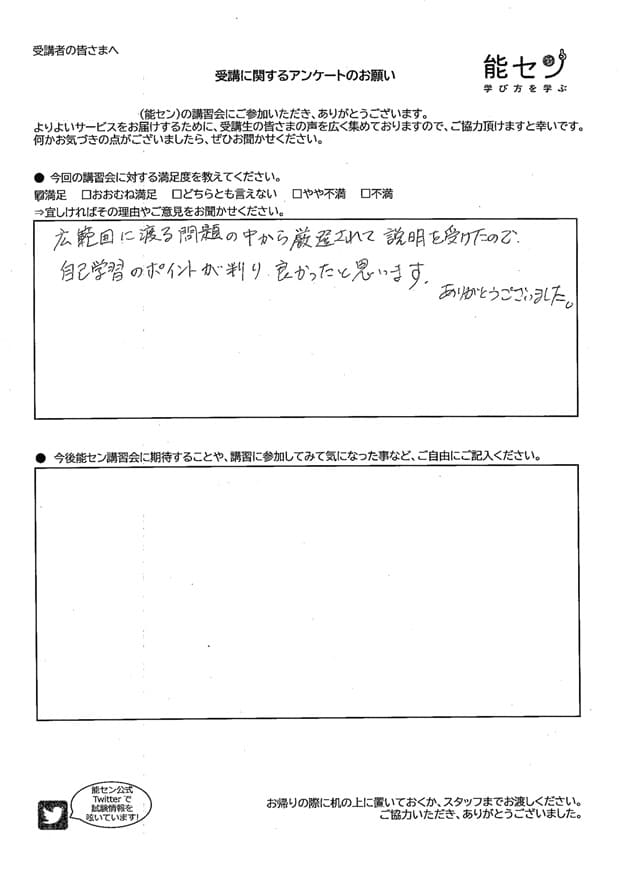 受講者の皆さまへ
能セン
学び方を学ぶ
受講に関するアンケートのお願い
(能セン)の講習会にご参加いただき、ありがとうございます。
よりよいサービスをお届けするために、受講生の皆さまの声を広く集めておりますので、ご協力頂けますと幸いです。
何かお気づきの点がございましたら、ぜひお聞かせください。
● 今回の講習会に対する満足度を教えてください。
☑満足 □おおむね満足 □どちらとも言えない □やや不満 □不満
⇒宜しければその理由やご意見をお聞かせください。
広範囲に渡る問題の中から厳選されて説明を受けたので、
自己学習のポイントが判り良かったと思います。
ありがとうございました。
● 今後能セン講習会に期待することや、講習に参加してみて気になった事など、ご自由にご記入ください。
能セン公式
Twitterで
試験情報を
呟いています!
お帰りの際に机の上に置いておくか、スタッフまでお渡しください。
ご協力いただき、ありがとうございました。